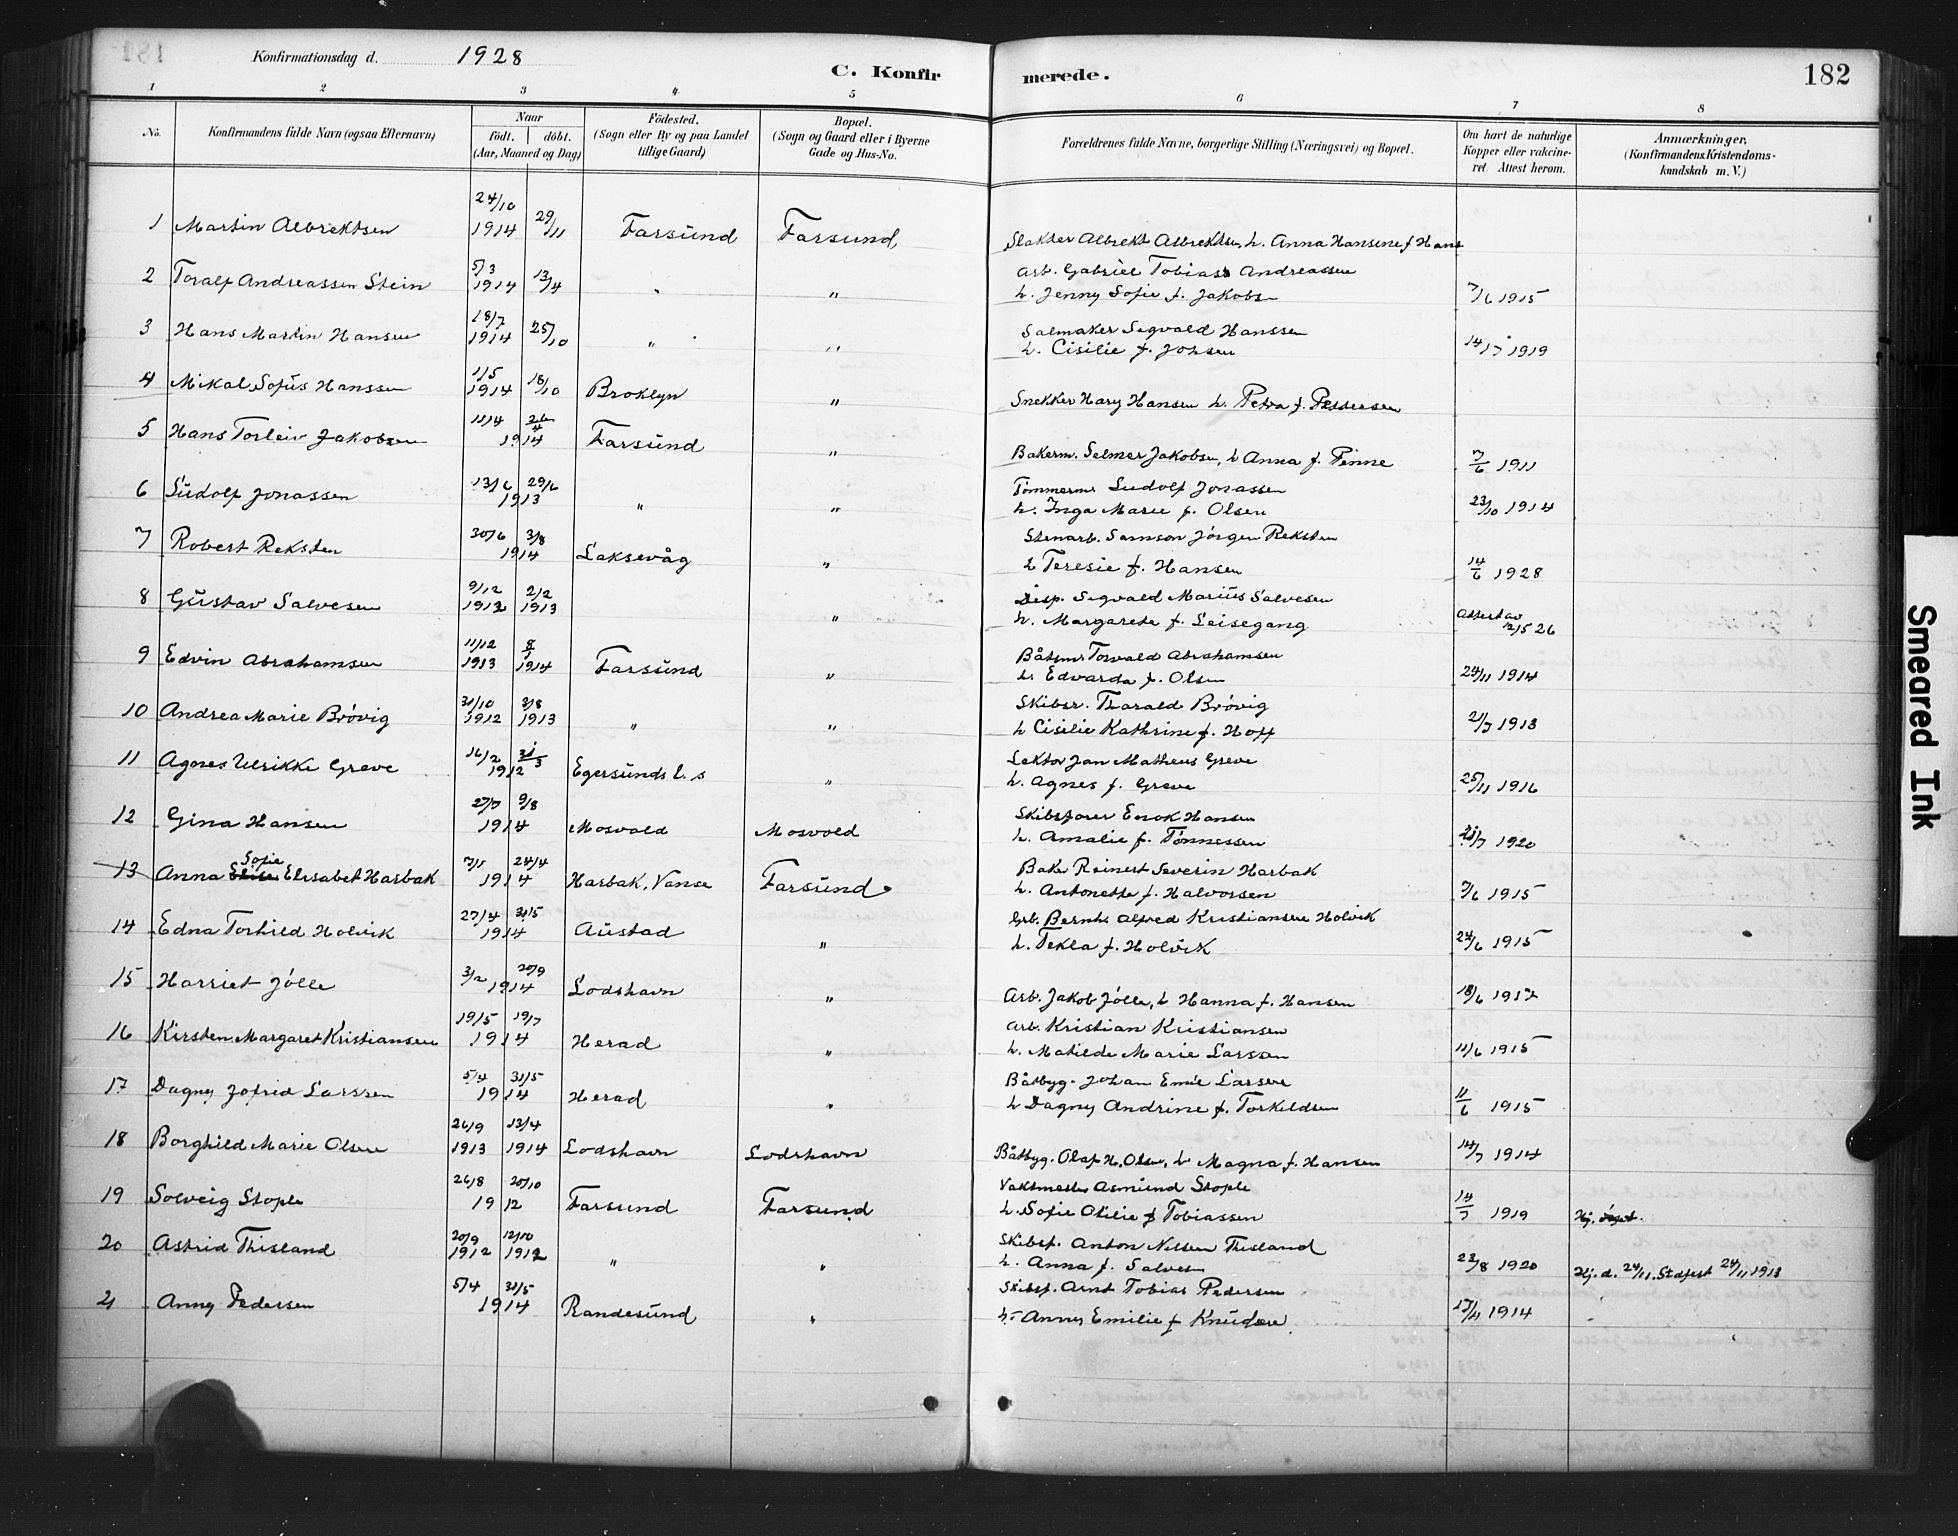 181
Konfirmationsdag d. 1928
C. Konfirmerede. 182
1 2 3 4 5 6 7 8
No. Konfirmandens fulde Navn (ogsaa Efternavn) Naar födt. döbt. (Aar, Maaned og Dag) Födested. (Sogn eller By og paa Landet tillige Gaard) Bopæl. (Sogn og Gaard eller i Byerne Gade og Hus-No. Forældrenes fulde Navne, borgerlige Stilling (Næringsvei) og Bopæl. Om havt de naturlige Kopper eller vakcineret. Attest herom. Anmærkninger. (Konfirmandens Kristendomskundskab m. V.)
1 Martin Albrektsen 24/10 1914 29/11 Farsund Farsund Slakter Albrekt Albrektsen, h. Anna Hansine f Hans
2 Toralf Andreassen Stein 5/3 1914 13/4 " " Arb. Gabriel Tobias Andreassen
h. Jenny Sofie f. Jakobs 7/6 1915
3 Hans Martin Hansen 18/7 1914 25/10 " " Salmaker Sigvald Hanssen
h. Cisilie f. Johsen 14/7 1919
4 Mikal Sofus Hanssen 1/5 1914 18/10 Broklyn " Snekker Hary Hansen h. Petra f. Pedersen
5 Hans Torleiv Jakobsen 11/4 26/4 1914 Farsund " Bakerm. Selmer Jakobsen, h Anna f. Finne 7/6 1911
6 Ludolf Jonassen 13/6 29/6 1913 " " Tömmerm Ludolf Jonassen
h. Inga Marie f. Olsen 23/10 1914
7 Robert Reksten 30/6 3/8 1914 Laksevåg " Stenarb. Samson Jörgen Reksten
h Teresie f. Hansen 14/6 1928
8 Gustav Salvesen 9/12 1912 2/2 1913 " Disp. Sigvald Marius Salvesen
h. Margarete f. Leisegang Attest av 12/5 26
9 Edvin Abrahamsen 11/12 1913 1914 Farsund " Båtsm Torvald Abrahamsen
h. Edvarda f. Olsen 24/11 1914
10 Andrea Marie Brövig 31/10 1912 3/8 1913 " " Skibsr. Tharald Brövig
h Cisilie Kathrine f. Hoff 21/7 1913
11 Agnes Ulrikke Greve 16/2 31/3 1912 Egersunds l. s " Lektor Jan Matheus Greve
h. Agnes f. Greve 25/11 1916
12 Gina Hansen 27/7 9/8 1914 Mosvold Mosvold Skibsförer Enok Hansen
h. Amalie f. Tönnessen 21/7 1920
13 Anna Sofie Elisabet Harbak 7/1 24/4 1914 Harbak, Vanse Farsund Bake Reinert Severin Harbak
h. Antonette f. Halvorsen 7/6 1915
14 Edna Torhild Holvik 27/4 31/5 1914 Austad " Grb. Bernt Alfred Kristiansen Holvik
h. Tekla f. Holvik 24/6 1915
15 Harriet Jölle 3/2 20/9 1914 Lodshavn " Arb. Jakob Jölle, h Hanna f. Hansen 18/6 1917
16 Kirsten Margaret Kristiansen 19/5 19/7 1914 Herad " Arb. Kristian Kristiansen
h. Matilde Marie Larssen 11/6 1915
17 Dagny Jofrid Larssen 5/4 31/5 1914 Herad " Båtbyg. Johan Emil Larsen
h Dagny Andrine f. Torkildsen 11/6 1915
18 Borghild Marie Olsen 26/9 1913 13/4 1914 Lodshavn Lodshavn Båtbyg. Olaf H. Olsen, h Magna f. Hansen 14/7 1914
19 Solveig Stople 26/8 20/10 1912 Farsund Farsund Vaktmester Asmund Stople
h. Sofie Otilie f Tobiassen 14/7 1919 Hj.
20 Astrid Thisland 20/9 1912 12/10 1912 " " Skibsf. Anton Nilsen Thisland
h. Anna f. Salves 23/8 1920 Hj. d. 24/11. Stadfest 24/11 1913
21 Anny Pedersen 5/4 31/5 1914 Randesund " Skibsf. Arnt Tobias Pedersen
h. Anny Emilie f Knudsen 17/11 1914
Smeared Ink